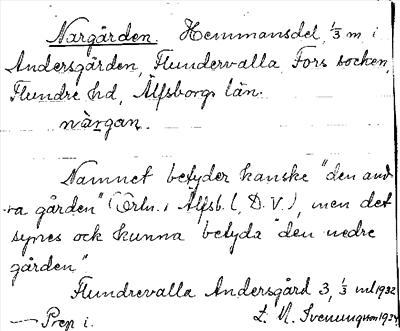 Nargården. Hemmansdel, 1/3 m. i
Andersgården, Flundervalla, Fors socken,
Flundre hd, Älfsborgs län.
nàrgan.
Namnet betyder kanske "den and-
ra gården" (Ortn. i Älfsb. l, D. V.), men det
synes ock kunna betyda "den nedre
gården."
Flundrevalla Andersgård 3, 1/3 mtl 1932
— Prep i. L. M. Svenungsson 1934